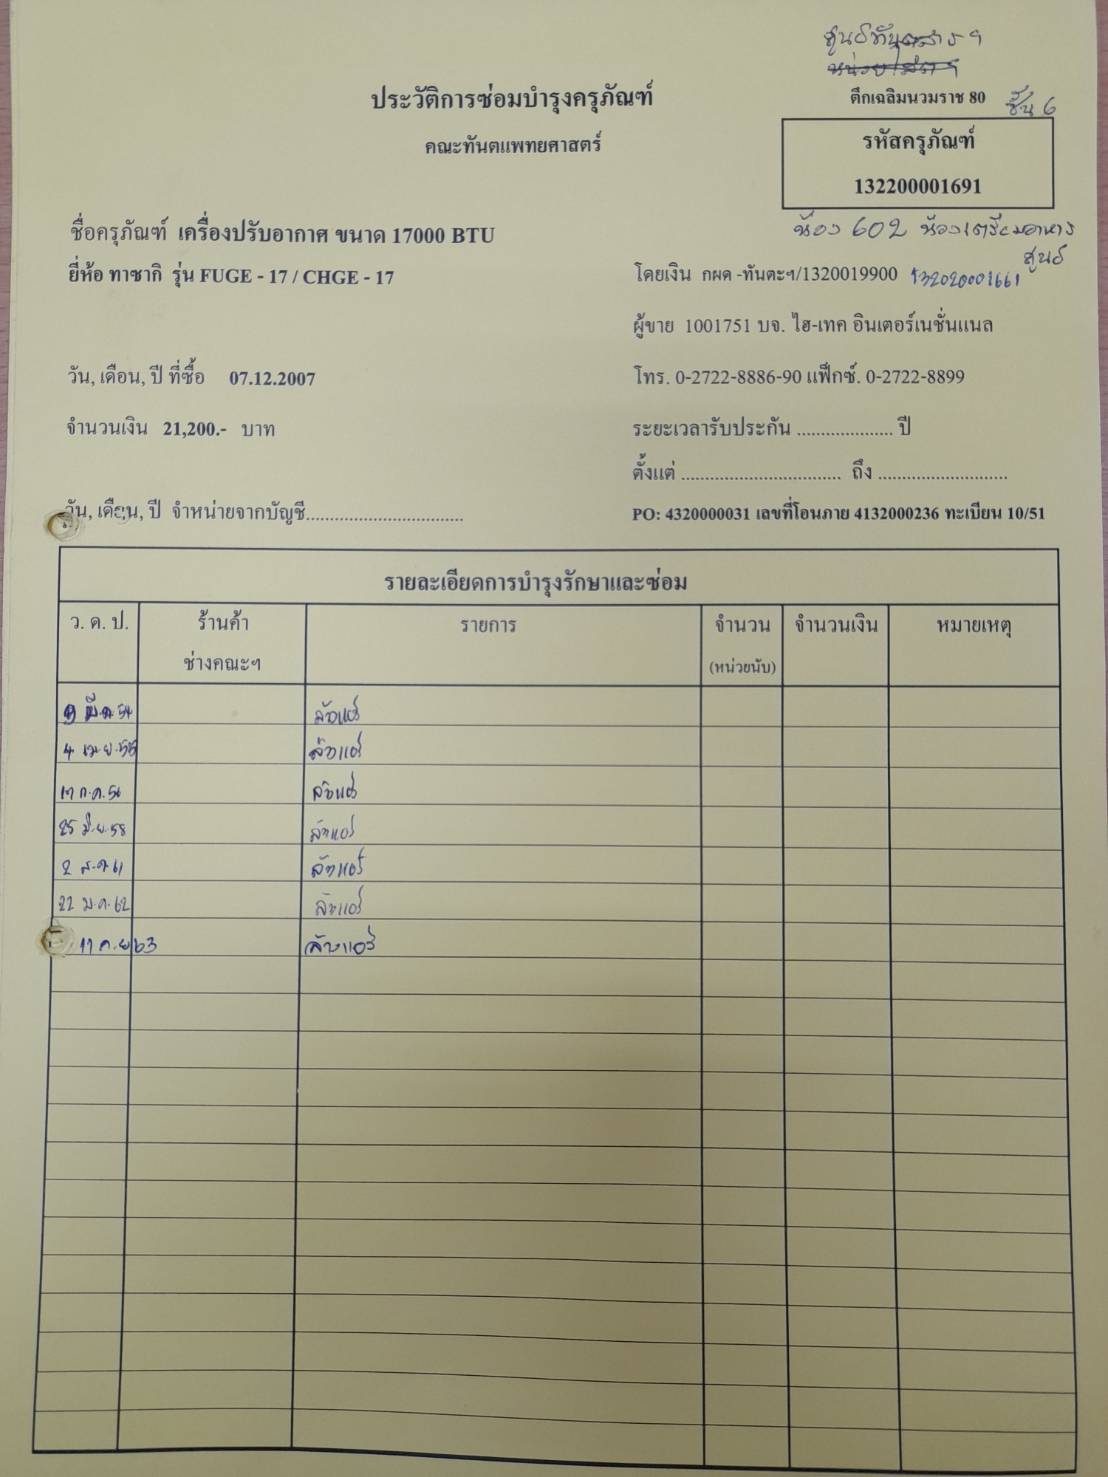 ศูนย์ทันตสารฯ
ประวัติการซ่อมบำรุงครุภัณฑ์
ตึกเฉลิมนวมราช 80 ชั้น 6
คณะทันตแพทยศาสตร์
รหัสครุภัณฑ์
132200001691
ชื่อครุภัณฑ์ เครื่องปรับอากาศ ขนาด 17000 BTU
ห้อง 602 ห้องเตรียมอาหาร
ศูนย์
ยี่ห้อ ทาซากิ รุ่น FUGE - 17 / CHGE - 17
โดยเงิน กผด -ทันตะฯ/1320019900 132020001661
ผู้ขาย 1001751 บจ. ไฮ-เทค อินเตอร์เนชั่นแนล
วัน, เดือน, ปี ที่ซื้อ 07.12.2007
โทร. 0-2722-8886-90 แฟ็กซ์. 0-2722-8899
จำนวนเงิน 21,200.- บาท
ระยะเวลารับประกัน .................... ปี
ตั้งแต่ ................................. ถึง ...........................
วัน, เดือน, ปี จำหน่ายจากบัญชี.................................
PO: 4320000031 เลขที่โอนภาย 4132000236 ทะเบียน 10/51
รายละเอียดการบำรุงรักษาและซ่อม
ว. ด. ป. ร้านค้า รายการ จำนวน จำนวนเงิน หมายเหตุ
ช่างคณะฯ (หน่วยนับ)
มี.ค. 54 ล้างแอร์
4 เม.ย. 55 ล้างแอร์
17 ก.ค. 56 ล้างแอร์
25 มิ.ย. 58 ล้างแอร์
2 ส.ค. 61 ล้างแอร์
22 ม.ค. 62 ล้างแอร์
63 ล้างแอร์